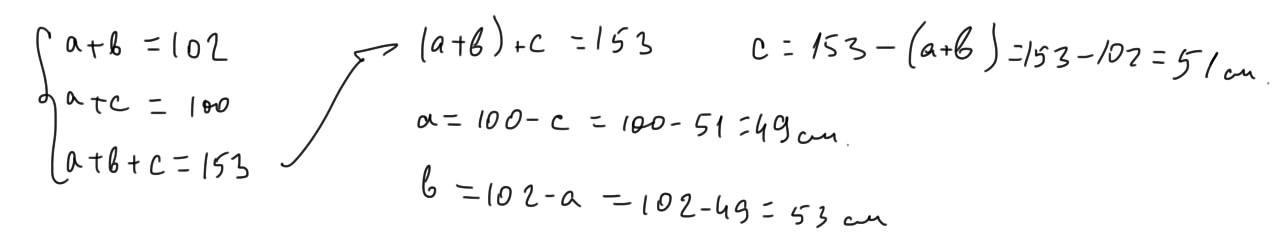 a+в = 102
a+c = 100
a+в+c = 153
(a+в)+c = 153
c = 153 - (a+в) = 153 - 102 = 51 см.
a = 100 - c = 100 - 51 = 49 см.
в = 102 - a = 102 - 49 = 53 см